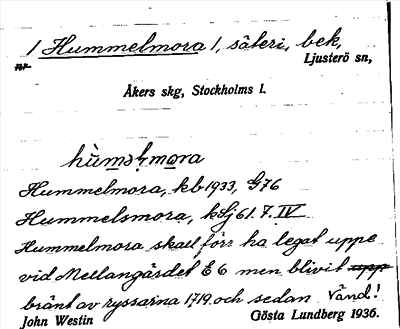 1 Hummelmora 1, säteri, bek,
Ljusterö sn,
Åkers skg, Stockholms l.
Hummelmora, kb 1933, G76
Hummelsmora, kSj 61. 7. IV
Hummelmora skall förr ha legat uppe
vid Mellangärdet E6 men blivit upp
bränt av ryssarna 1719 och sedan Vänd!
John Westin Gösta Lundberg 1936.